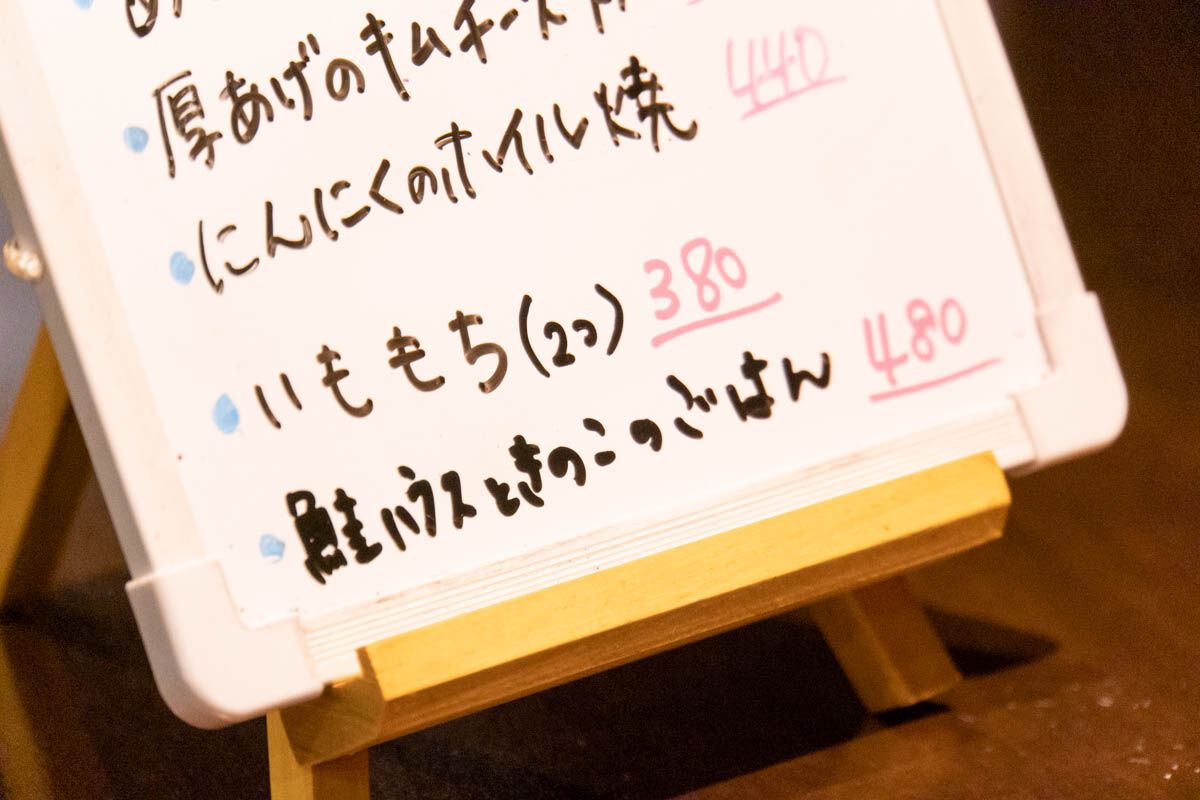 厚あげのキムチーズ
440
にんにくのホイル焼
380
いももち(2コ)
480
鮭ハラスときのこのごはん